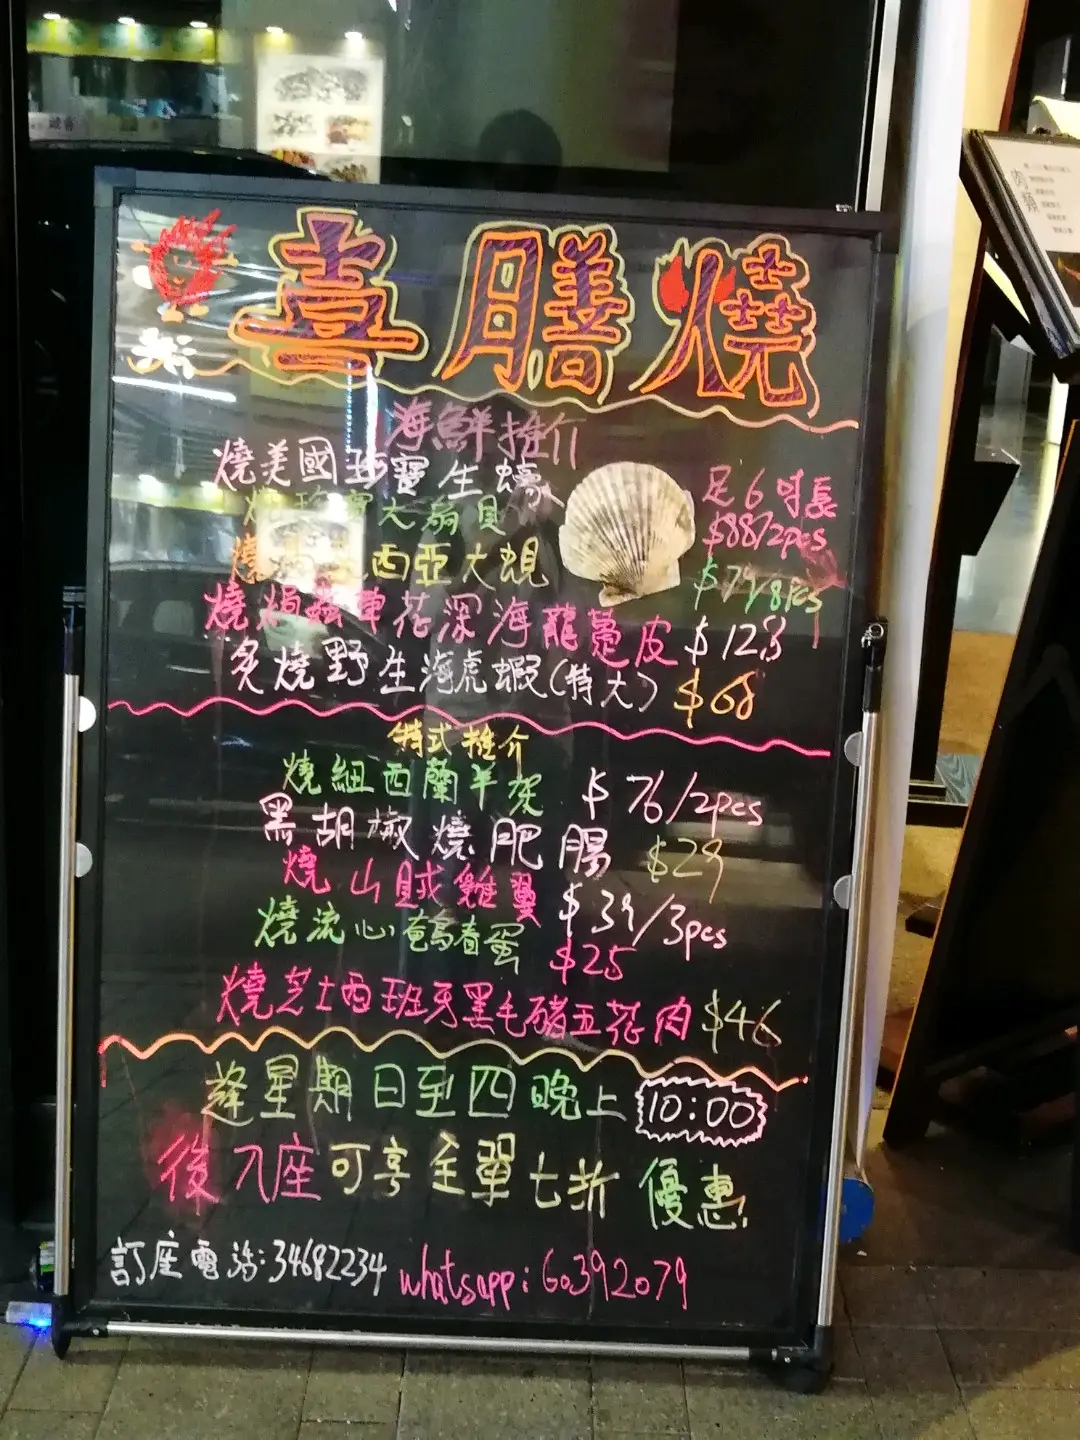 喜膳燒
海鮮推介
燒美國珍寶生蠔 足6吋長
$88/2pcs
大扇貝
西亞大蜆 $79/8pcs
燒焗 車花深海龍躉皮 $128
炙燒野生海虎蝦(特大) $68
特式推介
燒紐西蘭羊架 $76/2pcs
黑胡椒燒肥腸 $29
燒山賊雞翼 $39/3pcs
燒流心鵪春蛋 $25
燒芝士西班牙黑毛豬五花肉 $46
逢星期日至四晚上 10:00
後入座可享全單七折優惠
訂座電話:34682234 whatsapp:60392079
肉類